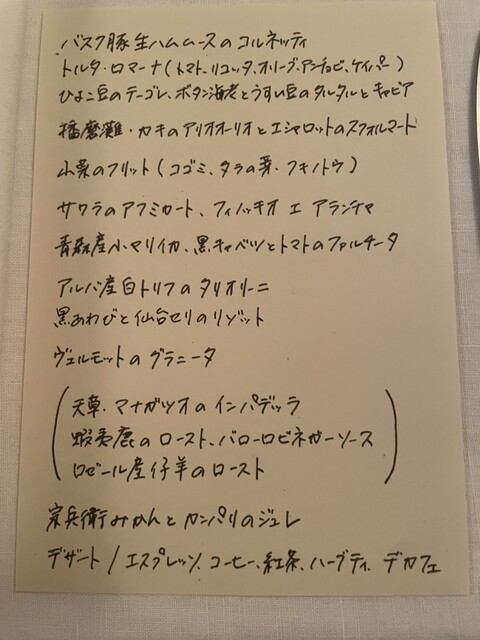 バスク豚生ハムムースのコルネッティ
トルタ・ロマーナ(トマト、リコッタ、オリーブ、アンチョビ、ケイパー)
ひよこ豆のテーゴレ、ボタン海老とうすい豆のタルタルとキャビア
播磨灘・カキのアリオオーリオとエシャロットのスフォルマート
山菜のフリット(コゴミ、タラの芽・フキノトウ)
サワラのアフミカート、フィノッキオ エ アランチャ
青森産小ヤリイカ、黒キャベツとトマトのファルチータ
アルバ産白トリフのタリオリーニ
黒あわびと仙台セリのリゾット
ヴェルモットのグラニータ
天草・マナガツオのインパデッラ
蝦夷鹿のロースト、バローロビネガーソース
ロゼール産仔羊のロースト
宗兵衛みかんとカンパリのジュレ
デザート / エスプレッソ、コーヒー、紅茶、ハーブティ、デカフェ